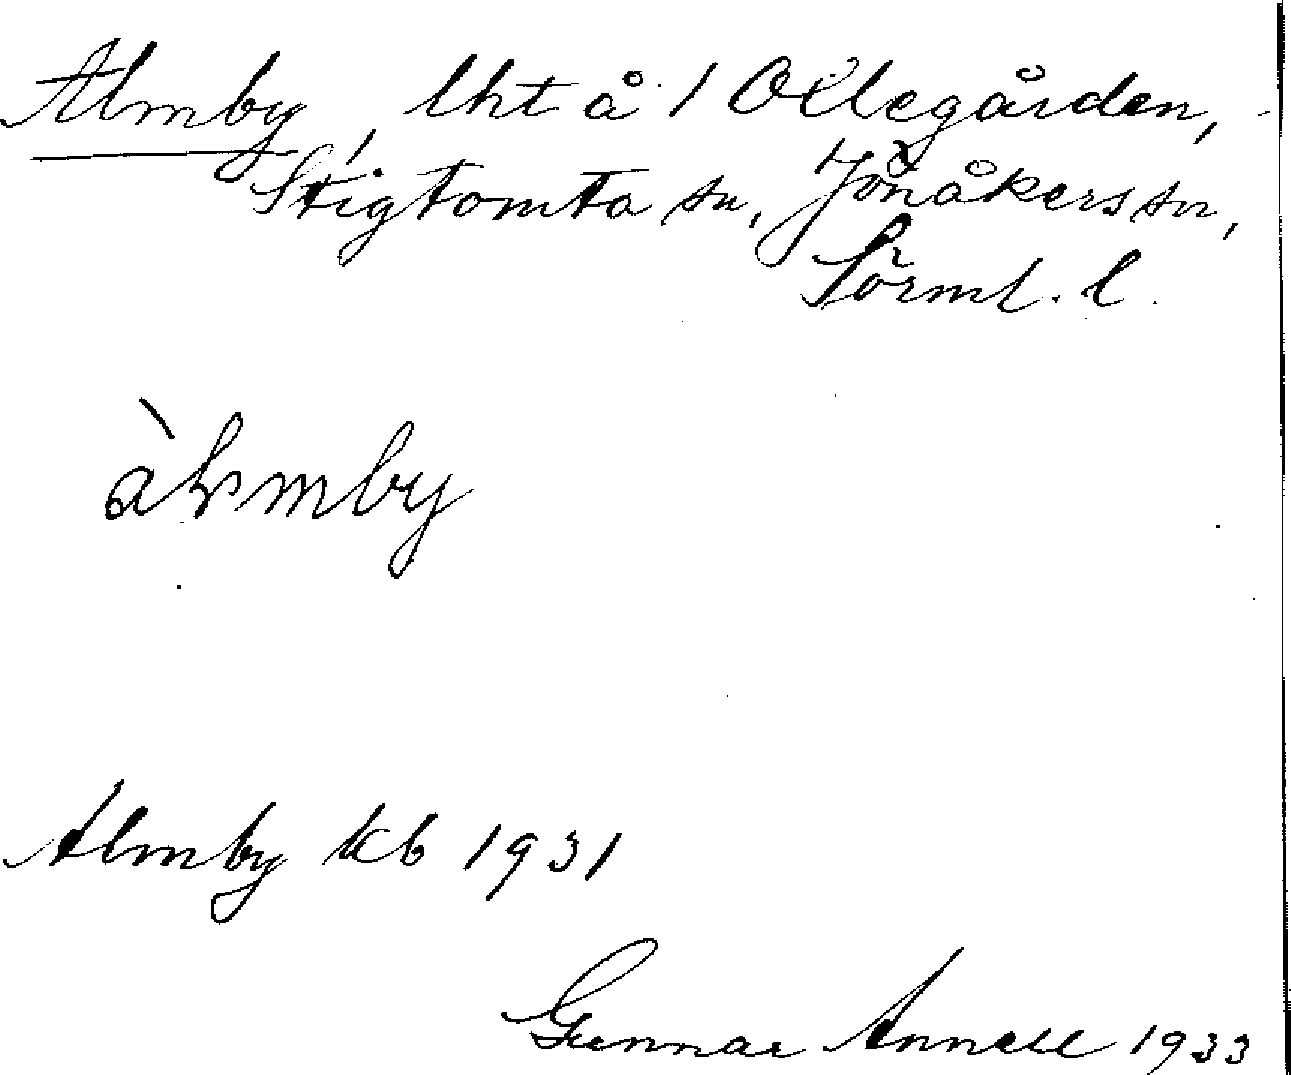 Almby, lht å 1 Ollegården,
Stigtomta sn, Jönåkers hr,
Sörml. l.
àlmby
Almby kb 1931
Gunnar Annell 1933